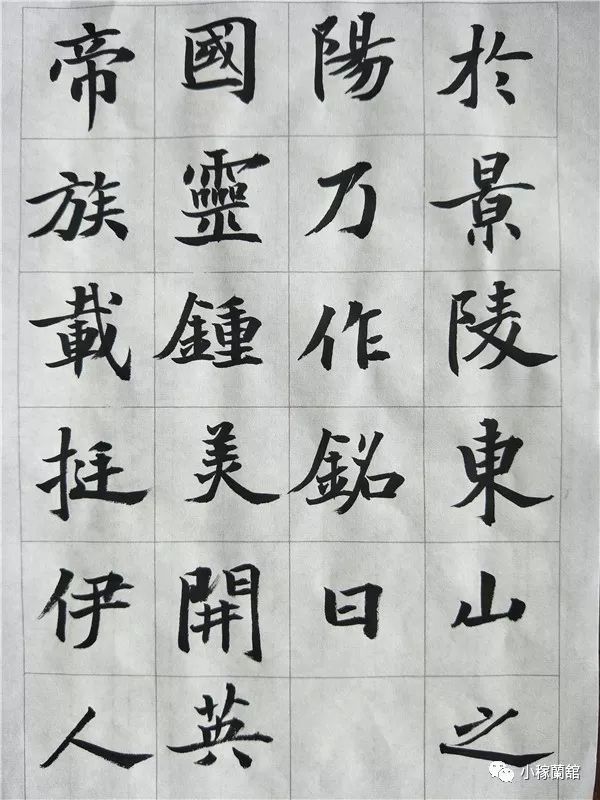 於景陵東山之
陽乃作銘曰
國靈鍾美開英
帝族載挺伊人
小稼蘭舘